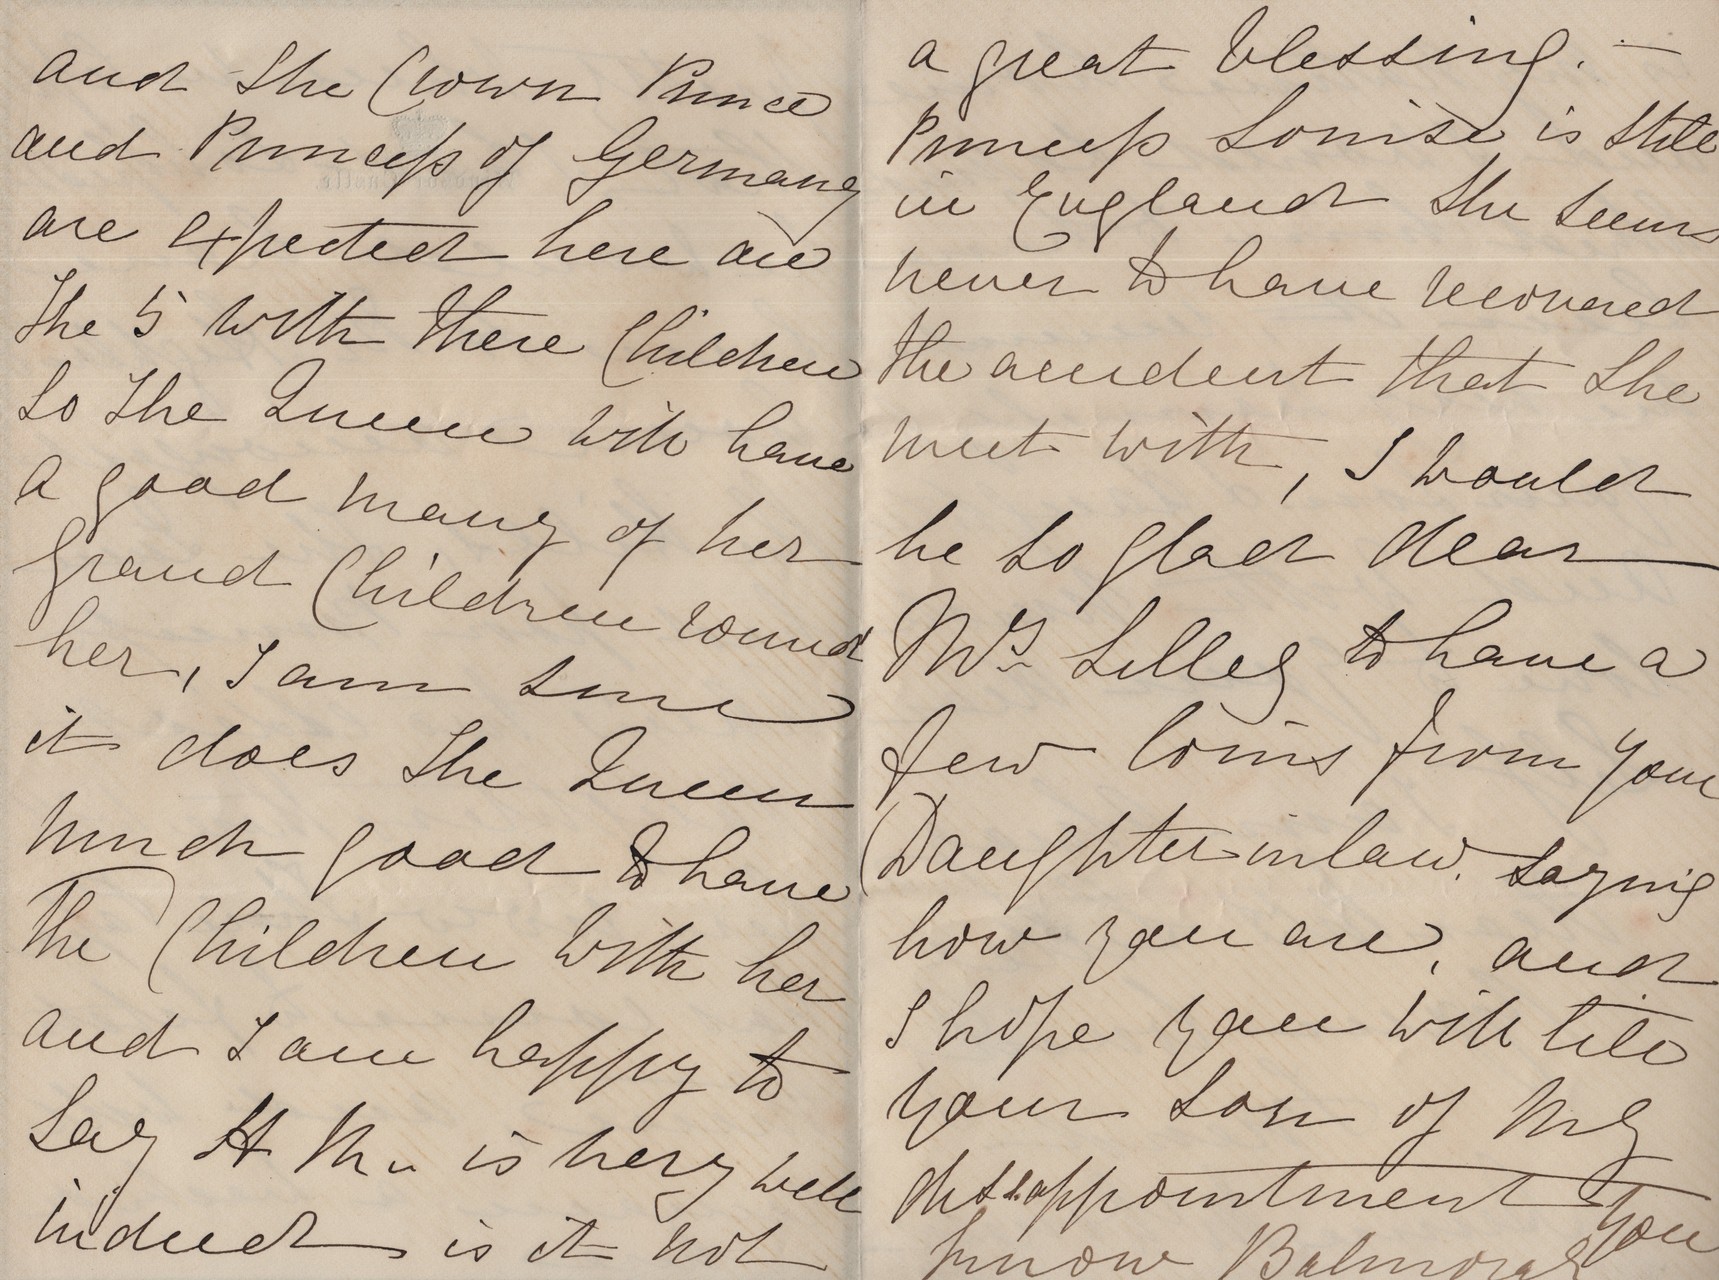 and the Crown Prince
and Princess of Germany
are expected here and
the 5 with there Children
So the Queen will have
a good many of her
Grand Children round
her, I am sure
it does the Queen
much good to have
the Children with her
and I am happy to
say H M. is very well
indeed is it not
a great blessing. —
Princess Louise is still
in England She seems
never to have recovered
the accident that she
meet with, I would
be so glad dear
Mrs. Lilley to have a
few loins from your
Daughter in law. saying
how you are, and
I hope you will tell
your son of my
dissappointment you
know Balmoral